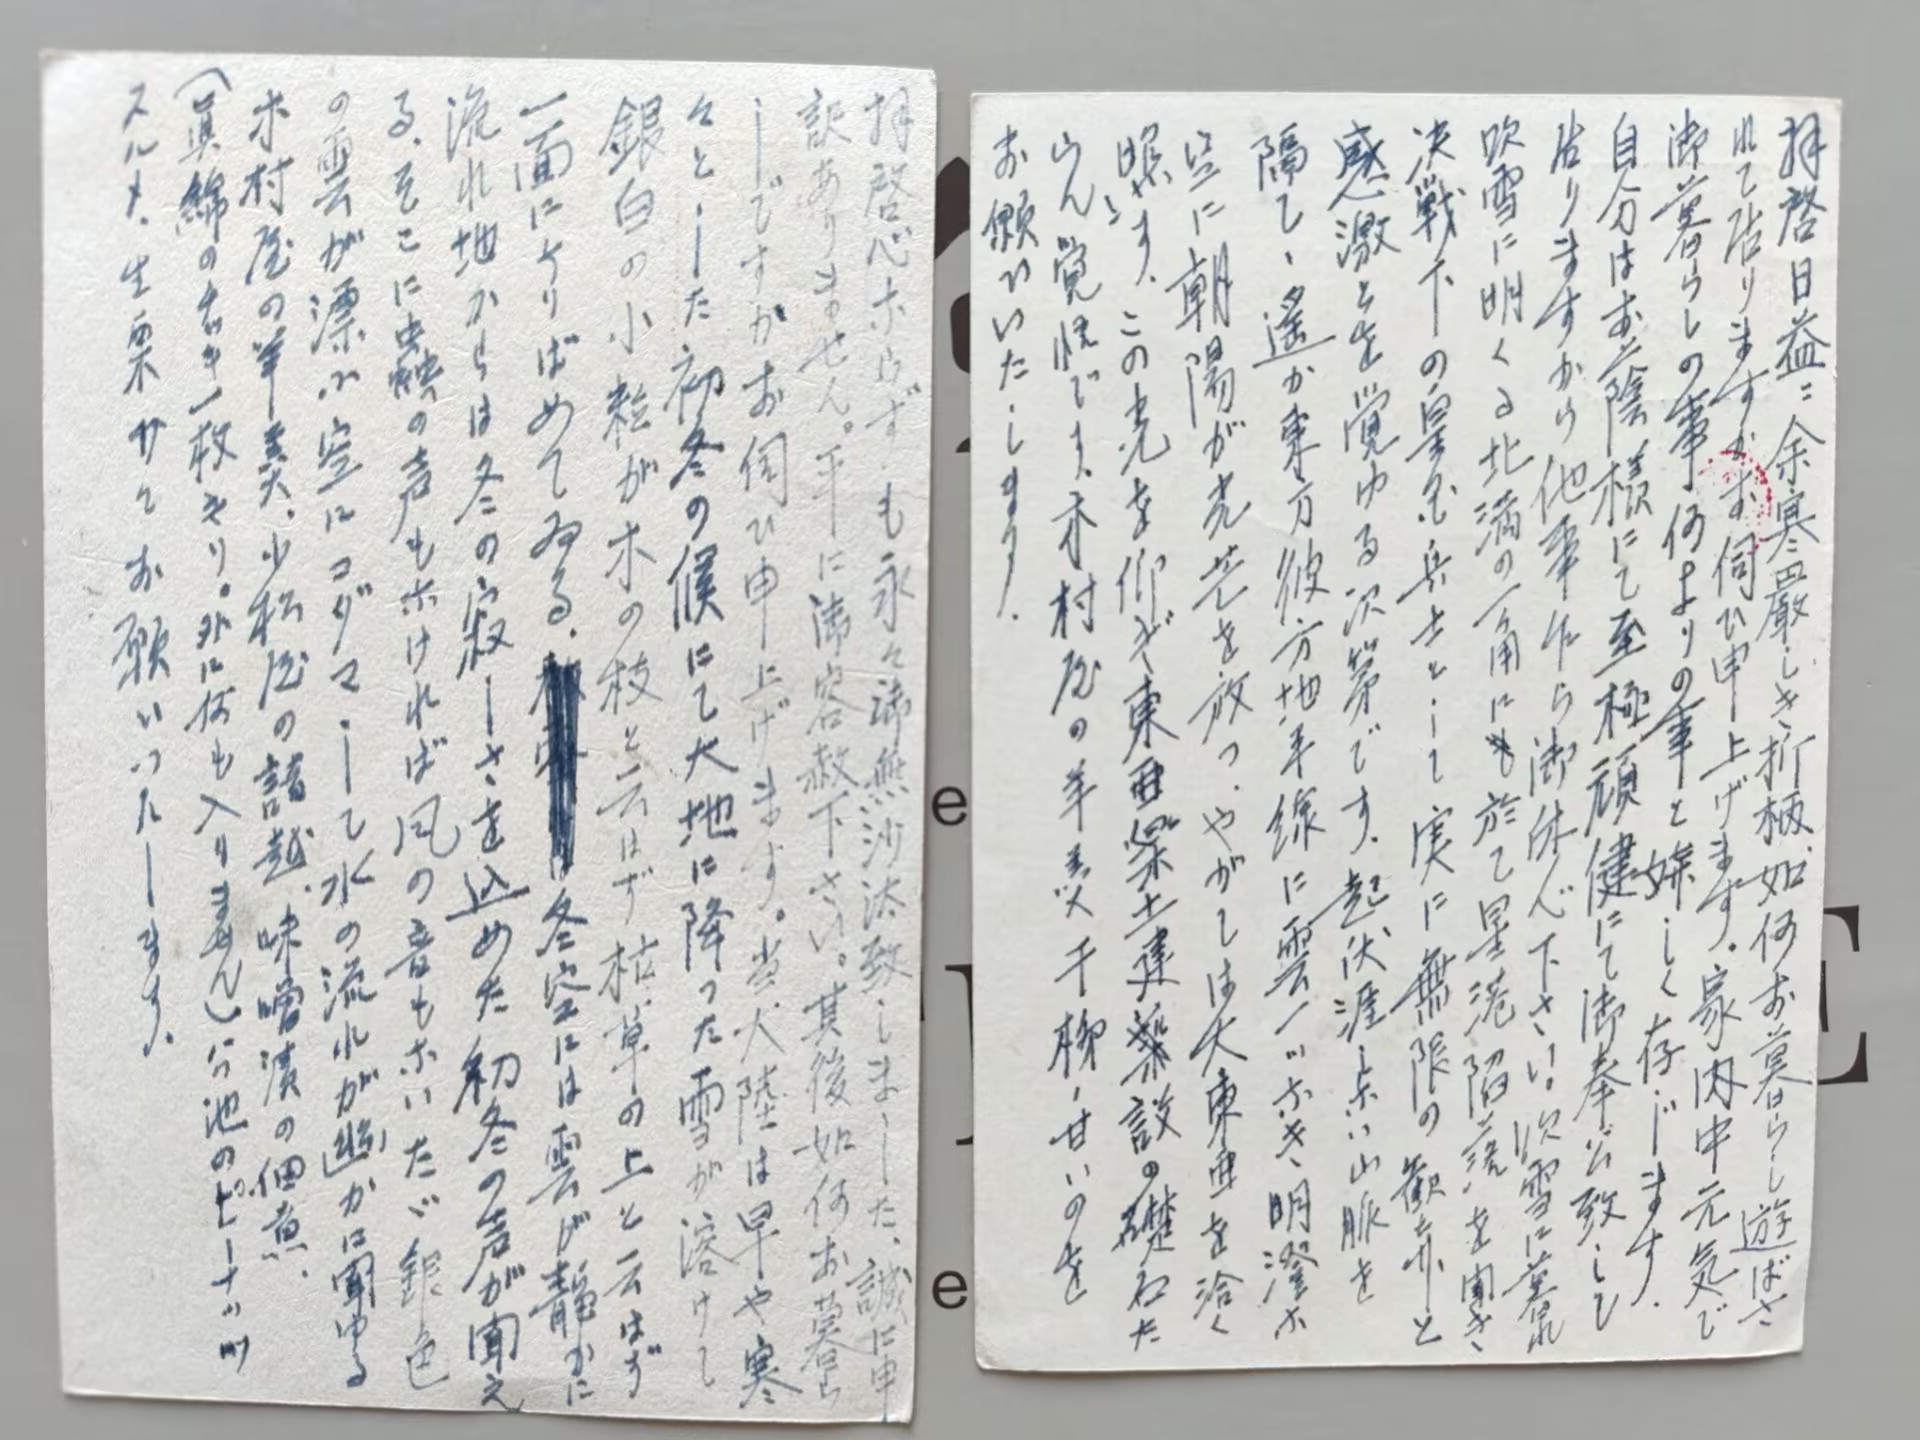 拝啓日益ニ余寒厳しき折柄、如何お暮らし遊ばさ
れて居りますかお伺ひ申上げます。家内中元気で
御暮らしの事何よりの事と嬉しく存じます。
自分はお蔭様にて至極頑健にて御奉公致して
居りますから他事乍ら御休心下さい。吹雪に暮れ
吹雪に明くる北満の一角にも於て星港陥落を聞き
決戦下の皇軍兵士として実に無限の歓喜と
感激とを覚ゆる次第です。起伏涯しない山脈を
隔て、遥か東方彼方地平線に雲一ツなき、明澄な
空に朝陽が光芒を放つ、やがては大東亜を洽く
照す、この光を仰ぎ東亜築土建築設の礎石た
らん覚悟です、木村屋の羊羹、千柳、甘いのを
お願ひいたします、
拝啓心ならずも永々御無沙汰致しました、誠に申
訳ありません。平に御容赦下さい。其後如何お暮ら
しですかお伺ひ申上げます。当大陸は早や寒
々とした初冬の候にて大地に降った雪が溶けて
銀白の小粒が木の枝と云はず枯草の上と云はず
一面にちりばめてゐる、冬空には雲が静かに
流れ地からは冬の寂しさを込めた初冬の声が聞え
る、そこに虫の声もなければ風の音もないたゞ銀色
の雲が漂ふ空にコダマして水の流れが幽かに聞ゆる
木村屋の羊羹、小松屋の諸越、味噌漬の佃煮、
(真綿のチョッキ一枚キリ。外に何も入りません)小池のピーナッツ
スルメ、生栗サてお願いいたします。